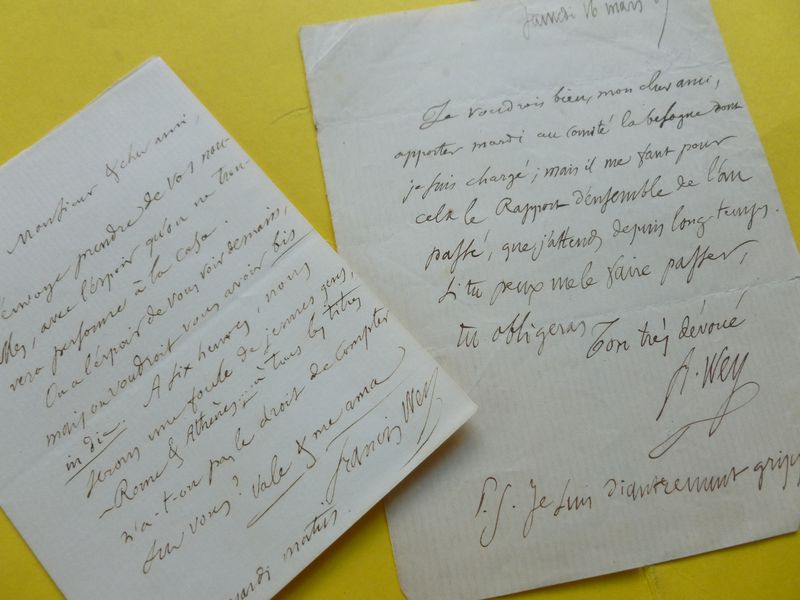 Monsieur & cher ami,
J'envoye prendre de vos nou-
velles, avec l'espoir qu'on ne trou-
vera personne à la casa.
On a l'espoir de vous voir demain,
mais on voudroit vous avoir bis
in die. A six heures, nous
serons une foule de jeunes gens,
Rome & Athènes; à tous les titres
n'a-t-on pas le droit de compter
sur vous? Vale & me ama
Francis Wey
mardi matin.
Samedi 16 mars
Je voudrois bien, mon cher ami,
apporter mardi au comité la besogne dont
je suis chargé; mais il me faut pour
cela le Rapport d'ensemble de l'an
passé, que j'attends depuis long-temps.
Si tu peux me le faire passer,
tu obligeras Ton très dévoué
F. Wey
P.S. Je suis diantrement gripp